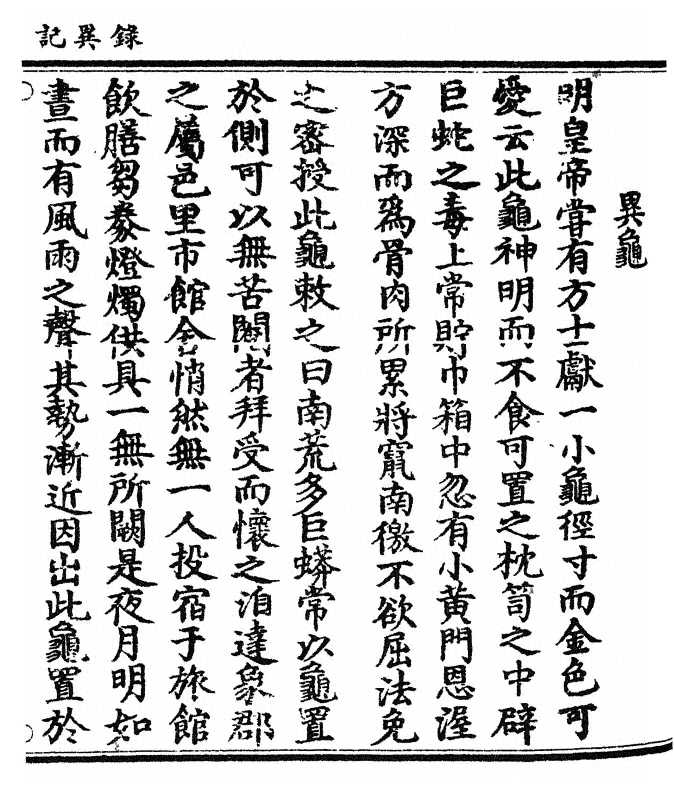 錄異記
異龜
明皇帝嘗有方士獻一小龜徑寸而金色可
愛云此龜神明而不食可置之枕笥之中辟
巨蛇之毒上常貯巾箱中忽有小黃門恩渥
方深而爲骨肉所累將竄南徼不欲屈法免
之密授此龜敕之曰南荒多巨蟒常以龜置
於側可以無苦閹者拜受而懷之洎達象郡
之屬邑里市館舍悄然無一人投宿于旅館
飲膳芻豢燈燭供具一無所闕是夜月明如
晝而有風雨之聲其勢漸近因出此龜置於